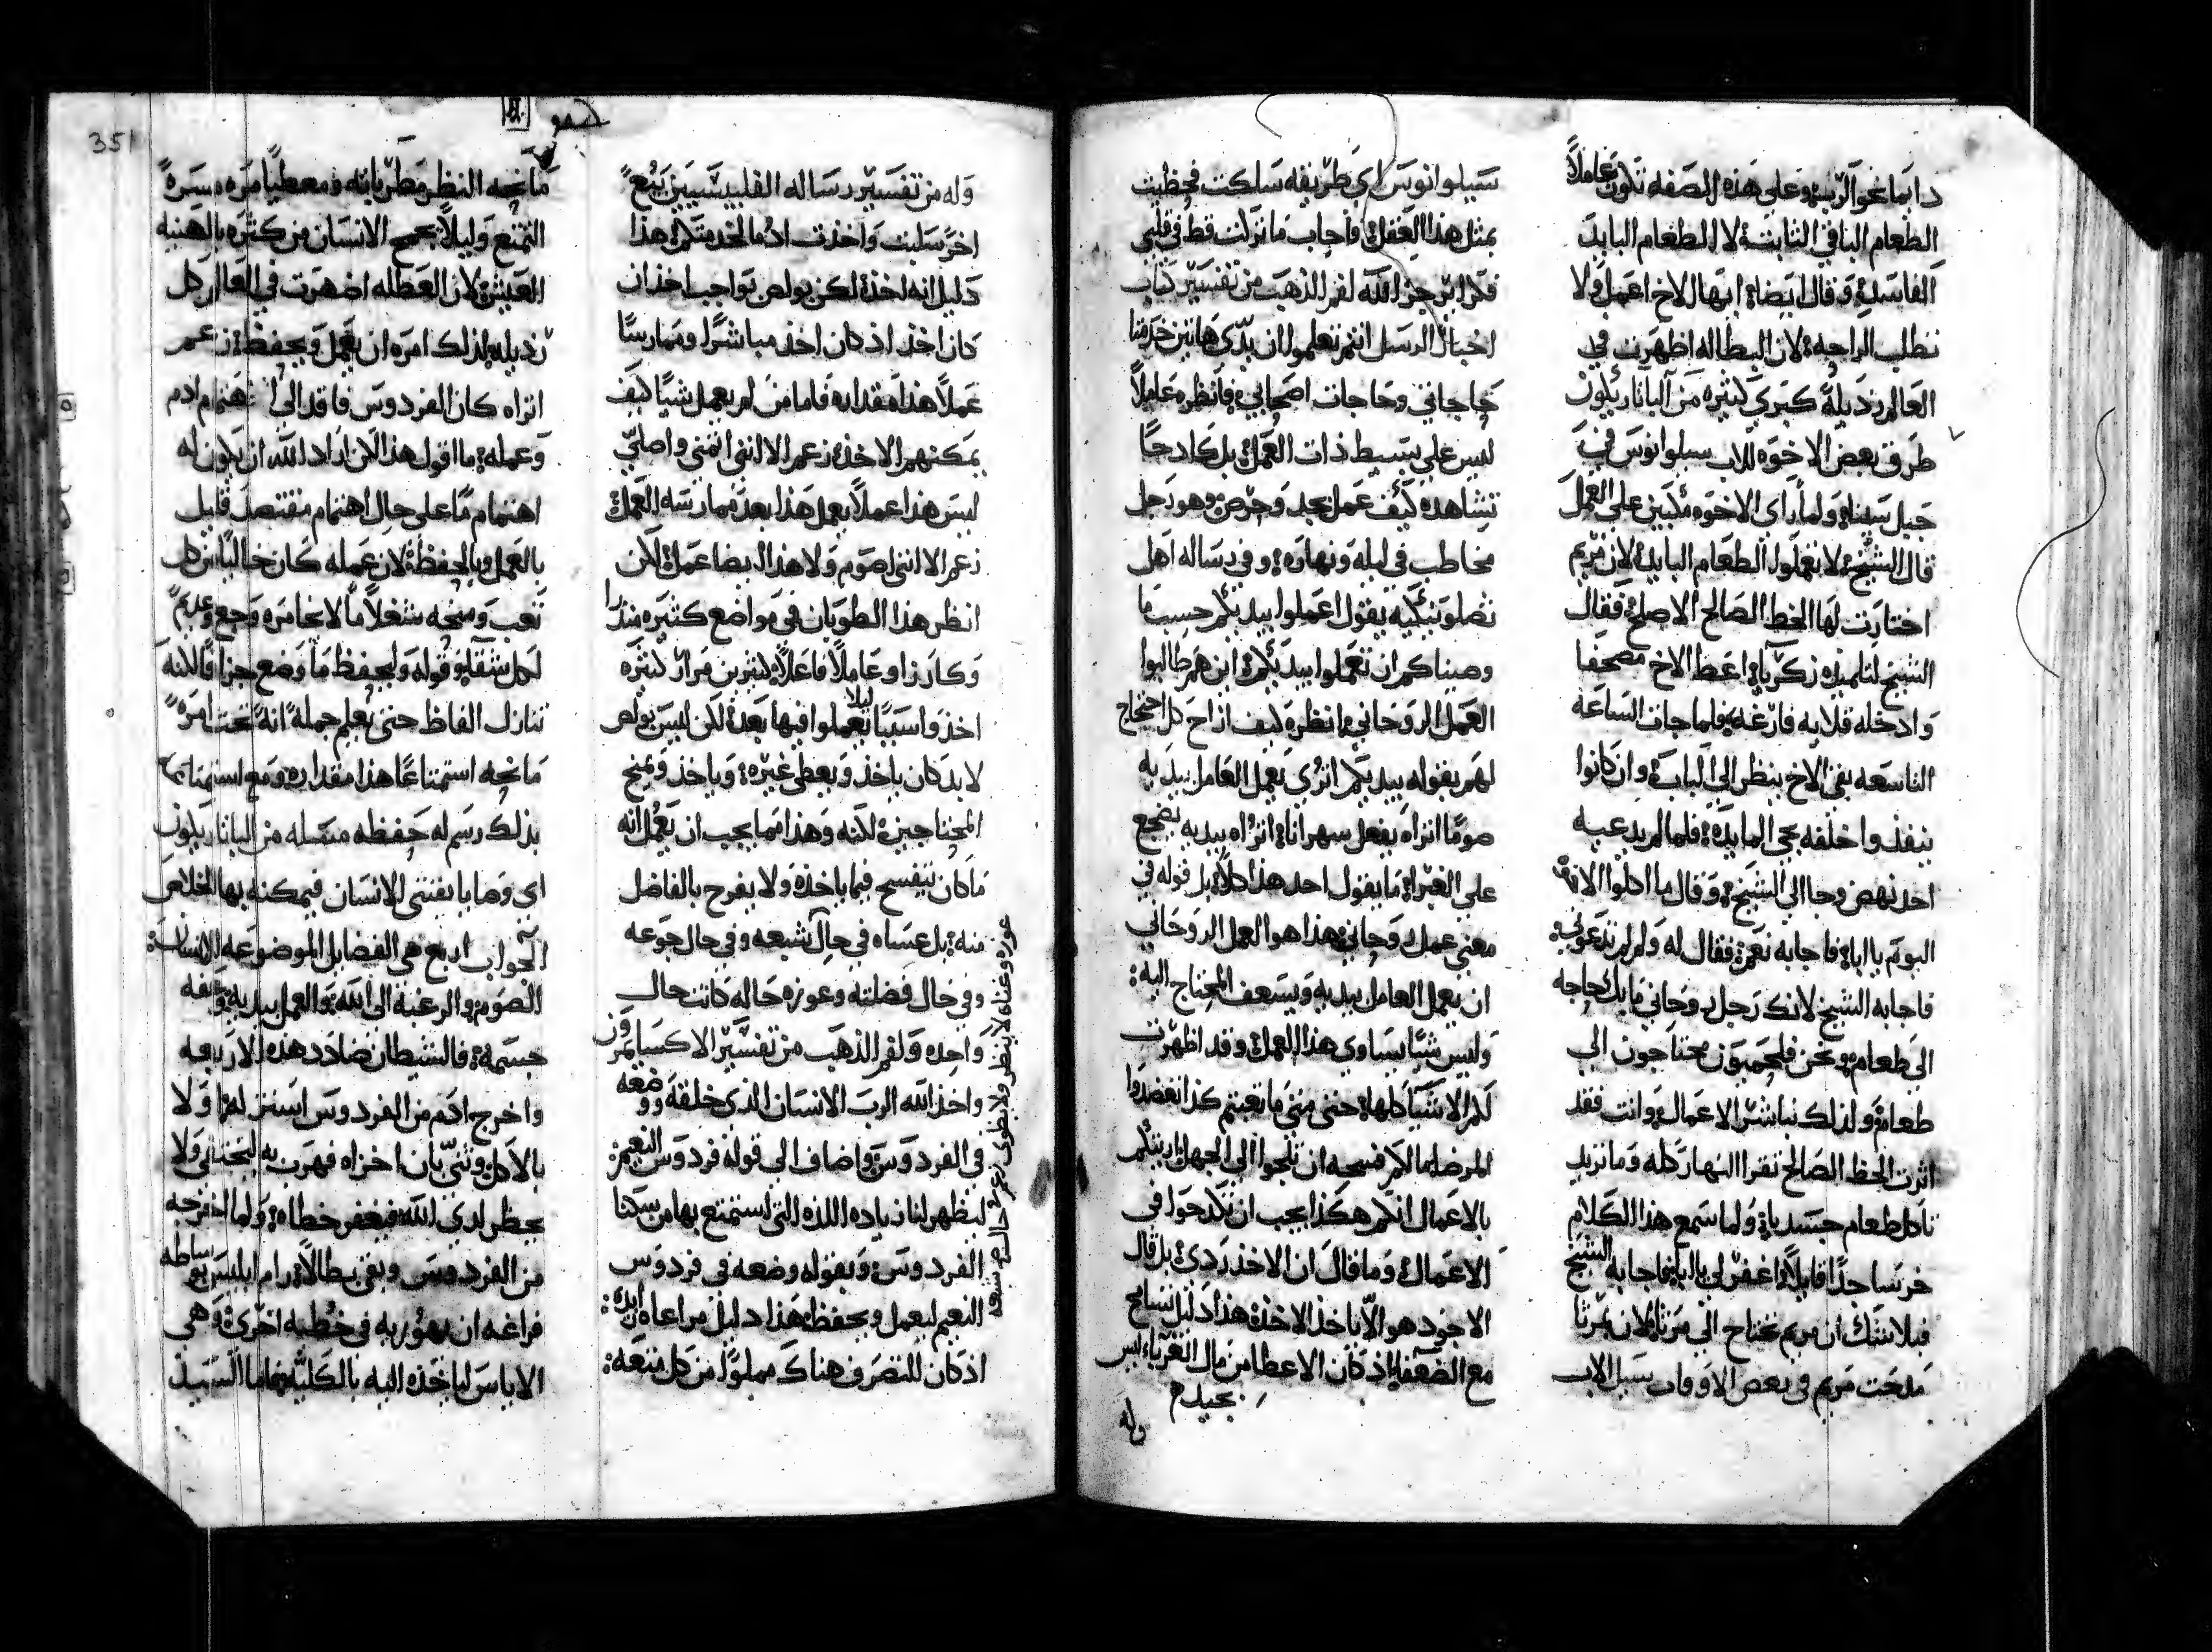 دايما نحو الرب، وعلى هذه الصفه تكون عاملاً
الطعام الباقي الثابت، لا الطعام البايد
الفاسد، وقال ايضاً ايها الاخ اعمل ولا
تطلب الراحه، لان البطاله اظهرت في
العالم رذيله كبرى كثيره من البانارىكون
طرق بعض الاخوه للاب سيلوانوس في
جبل سينا، ولما راى الاخوه مكبين على العمل
قال للشيخ لا تعملوا الطعام البايد لان مريم
اختارت لها الحظ الصالح الاصلح فقال
الشيخ لتلميذه زكريا اعط الاخ مصحفا
وادخله قلايه فارغه، فلما جات الساعه
التاسعه بقي الاخ ينظر الى الباب، وان كانوا
ينفذوا خلفه يجي المايده، فلما لم يدعيه
احد نهض وجا الى الشيخ، وقال ما اكلوا الاخوه
اليوم يا ابا، فاجابه نعم، فقال له ولم لم تدعوني
فاجابه الشيخ لانك رجل روحاني ما بك حاجه
الى طعام، ونحن فلحميون محتاجون الى
طعام، ولذلك نباشر الاعمال، وانت فقد
اثرت الحظ الصالح تقرا النهار كله وما تريد
تاكل طعام جسديا، ولما سمع هذا الكلام
خر ساجدًا قايلاً اغفر لي يا ابا، فاجابه الشيخ
فبلا شك ان مريم تحتاج الى مرثا، لان بمرثا
مدحت مريم في بعض الاوقات سيل الاب
سيلوانوس اي طريقه سلكت فحظيت
بمثل هذا العقل، فاجاب ما تركت قط في قلبي
فكرًا يرجز الله لفم الذهب من تفسير كتاب
اخبار الرسل انتم تعلموا ان يدّي هاتين خدمتا
حاجاتي وحاجات اصحابي، فانظره عاملاً
ليس على بسيط ذات العمل، بل كادحًا
تشاهده كيف عمل بجد وحرص، وهو رجل
مخاطب في ليله ونهاره، وفي رساله اهل
تصلونيكيه يقول اعملوا بيديكم حسب ما
وصيناكم ان تعملوا بيديكم، اين هم طالبوا
العمل الروحاني، انظره كيف ازاح كل احتجاج
لهم بقوله بيديكم اترى يعمل العامل بيديه
صومًا اتراه يفعل سهرانا، اتراه بيديه يضجع
على الغبرا، ما يقول احد هذا كلاً، بل قوله في
معنى عمل روحاني، هذا هو العمل الروحاني
ان يعمل العامل بيديه ويسعف المحتاج اليه؛
وليس شيًا يساوي هذا العمل، وقد اظهرت
لكم الاشيا كلها، حتى متى ما تعبتم كذا تعضدوا
المرضا، مالكم فسحه ان تلجوا الى الجهل، اريتكم
بالاعمال انكم هكذا يجب ان تكدحوا في
الاعمال، وما قال ان الاخذ ردى، بل قال
الاجود هو الاّ ياخذ الاخذ، هذا دليل تسامح
مع الضعفا، اذ كان الاعطا من مال الغرباء ليس
بجيد م
وله
وله من تفسير رساله الفليبيسيين يبع
اخر سلبت واخذت ادُمًا لخدمتكم، هذا
دليل انه اخذ، لكن بولص بواجب اخذ ان
كان اخذ اذ كان اخذ مباشرًا وممارسًا
عملاً هذا مقداره، فاما من لم يعمل شيًا كيف
يمكنهم الاخذ، زعم الا انني اتمني واصلي
ليس هذا عملاً يعمل هذا بعد ممارسه العمل
زعم الا انني اصوم ولا هذا ايضا عمل، لكن
انظر هذا الطوبان في مواضع كثيره منذرا
وكارزا وعاملاً فاعلاً، كثيرين مرار كثيره
اخذوا سببًا ليلا يعملوا فيها بعد، لكن ليس بولص
لا بد كان ياخذ ويعطي غيره، وياخذ ويمنح
المحتاجين، لكنه وهذا مما يجب ان يعمل انه
ما كان يتفسح فيما ياخذه ولا يفرح بالفاضل
منه، بل عساه في حال شبعه وفي حال جوعه
وفي حال فضلته وعوزه حاله كانت حال
واحده ولفم الذهب من تفسير الاكسيامرون
واخذ الله الرب الانسان الذي خلقه ووضعه
في الفردوس، واضاف الى قوله فردوس النعيم
ليظهر لنا زياده اللذه التي استمتع بها من سكنا
الفردوس، وبقوله وضعه في فردوس
النعيم ليعمل ويحفظ، هذا دليل مراعاه ابديه:
اذ كان للتصرف هناك مملوًا من كل متعه:
ما نحه النظر مطرّبا به ومعطيًا مره ومسره
التمتع وليلاً يجمح الانسان من كثره بالهنيه
العيش، لان العطله اضهرت في العالم كل
رذيله، لذلك امره ان يعمل ويحفظ، زعم
اتراه كان الفردوس فاقد الى اهتمام ادم
وعمله، ما اقول هذا لكن اراد الله ان يكون له
اهتمام مّا على حال اهتمام مقتصد قليل
بالعمل وبالحفظ، لان عمله كان خاليًا من كل
تعب ومنحه شغلاً ما لا يخامره وجع وعدم
لكل شقا، وقوله وليحفظ ما وضع جزافًا، لكنه
تنازل الفاظ حتى يعلم جمله انه تحت امره
ما نحه استمتاعًا هذا مقداره ومع استمتاعه
بذلك رسم له حفظه متسله من البانارىكون
اي وصايا يقتنى الانسان فيمكنه بها الخلاص
الجواب اربع هي الفضايل الموضوعه للانسان:
الصوم، والرغبه الى الله، والعمل بيديه، وعفه
جسمه، فالشيطان ضادد هذه الاربعه
واخرج ادم من الفردوس استنزله اولا
بالاكل، وثنى بان اخزاه فهرب به ليختفى ولا
يحظر لدى الله فيغفر خطاه، ولما اخرجه
من الفردوس وبقى بطالاً، رام ابليس بوساطه
فراغه ان يهوّر به في خطيه اخرى، وهي
الاياس ليا خذه اليه بالكليه، فاما السيد
عوزه وغناه لا ينظر ولا ينطوى زعم في حالتي شبعه
351